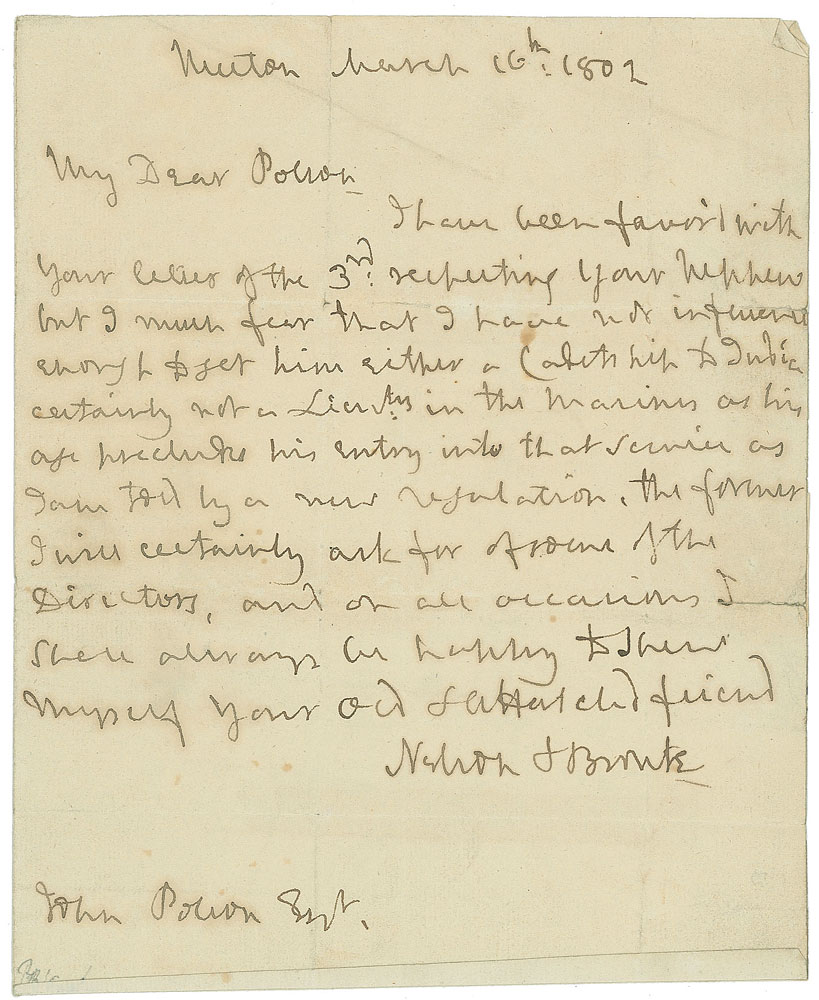 Merton March 16th: 1802
My Dear Polson
I have been favor'd with
Your letter of the 3rd: respecting Your Nephew
but I much fear that I have not influence
enough to get him either a Cadetship to India
certainly not a Lieutcy in the Marines as his
age precludes his entry into that Service as
I am told by a new regulation, the former
I will certainly ask for of some of the
Directors, and on all occasions I
shall always be happy to Shew
Myself Your Old & attatched friend
Nelson & Bronte
John Polson Esqr.